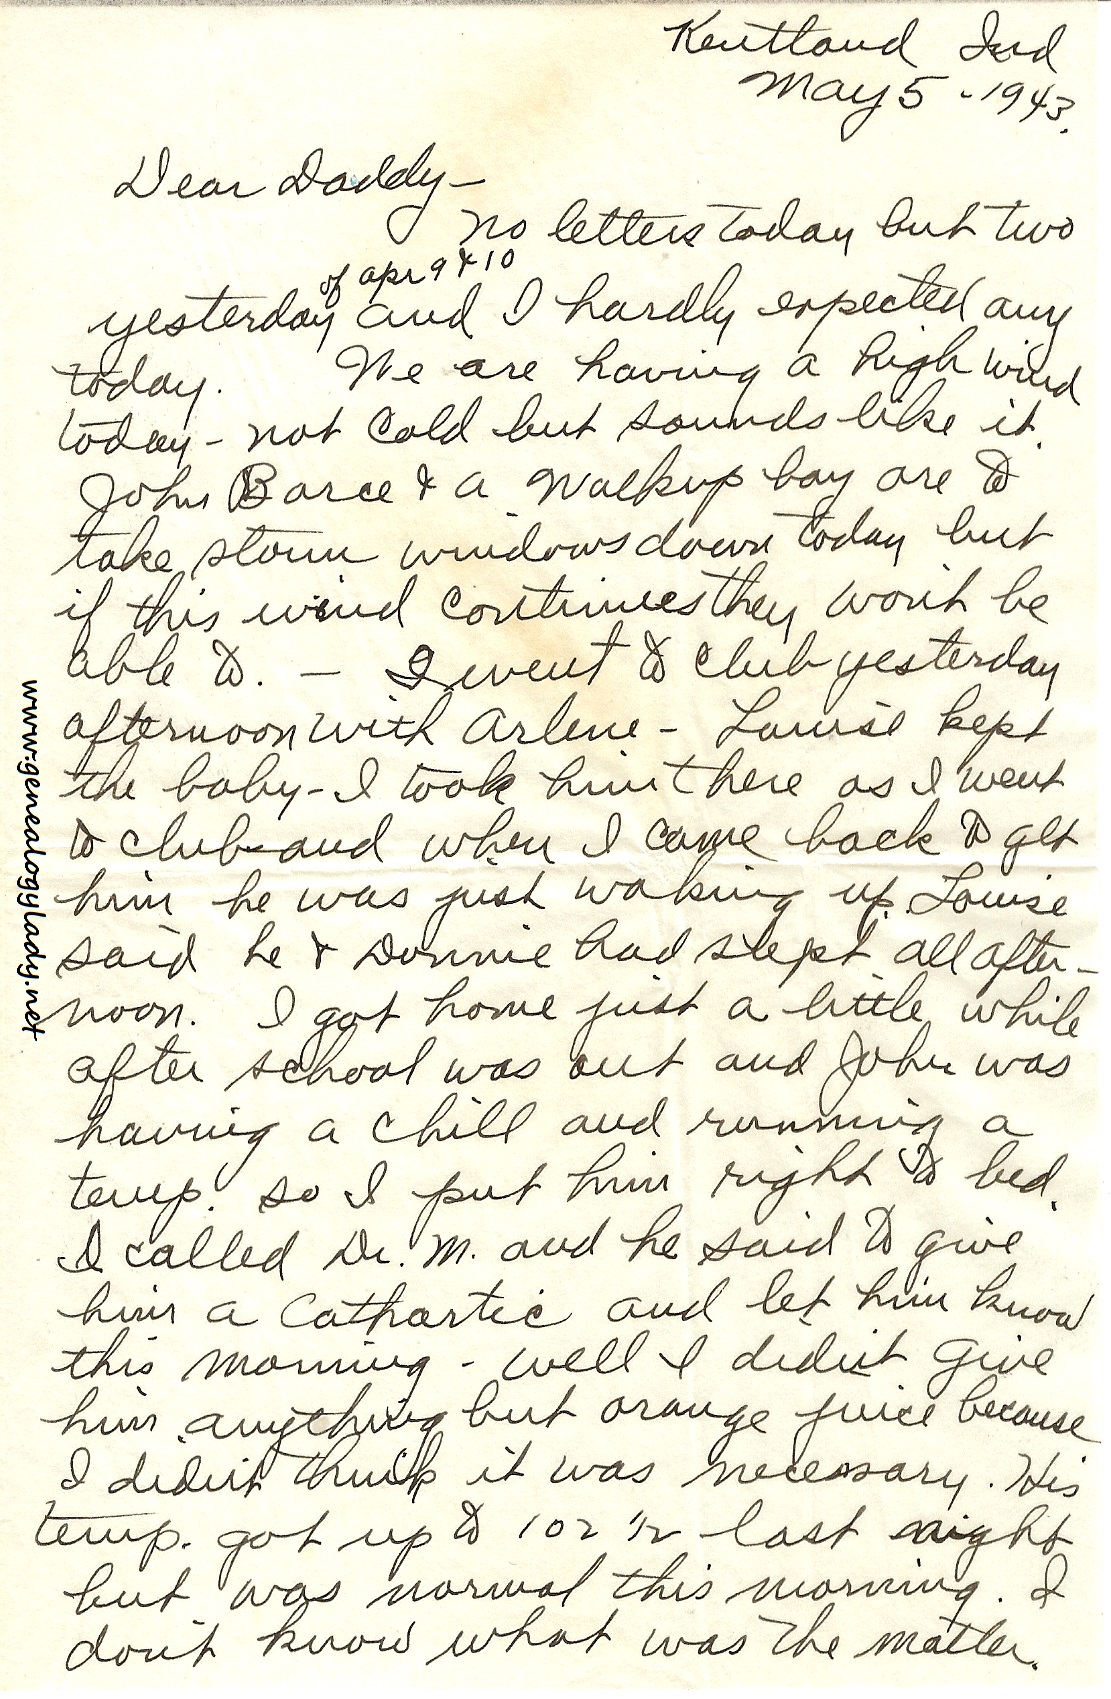 Kentland Ind
May 5 - 1943.
Dear Daddy -
No letters today but two
of Apr 9 & 10
yesterday and I hardly expected any
today. We are having a high wind
today - not cold but sounds like it.
John Barce & a Walkup boy are to
take storm windows down today but
if this wind continues they won't be
able to. - I went to club yesterday
afternoon with Arlene - Louise kept
the baby - I took him there as I went
to club and when I came back to get
him he was just waking up. Louise
said he & Donnie had slept all after-
noon. I got home just a little while
after school was out and John was
having a chill and running a
temp. so I put him right to bed.
I called Dr. M. and he said to give
him a cathartic and let him know
this morning - well I didn't give
him anything but orange juice because
I didn't think it was necessary. His
temp. got up to 102 1/2 last night
but was normal this morning. I
don't know what was the matter.
www.genealogylady.net